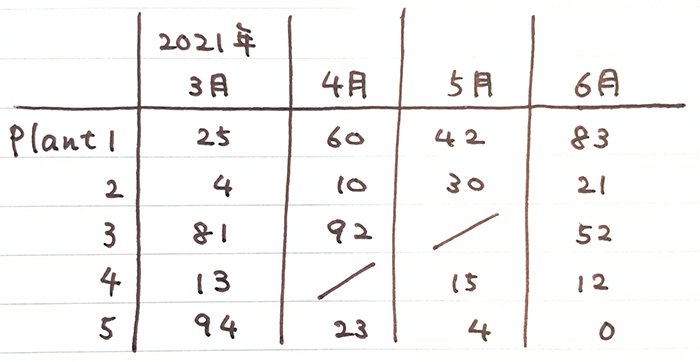 2021年
3月 4月 5月 6月
Plant 1 25 60 42 83
2 4 10 30 21
3 81 92 / 52
4 13 / 15 12
5 94 23 4 0